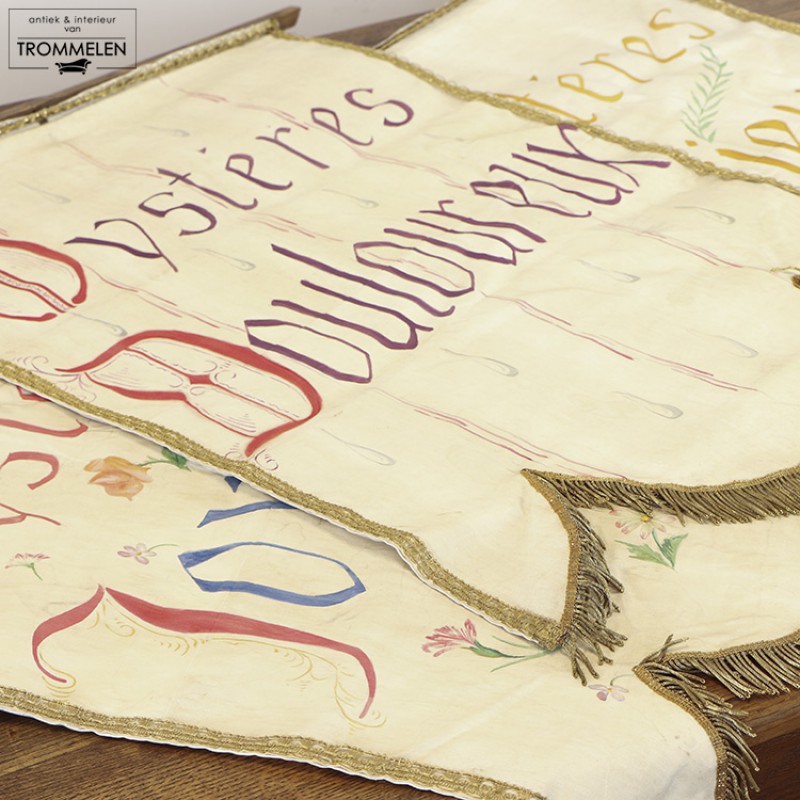 antiek & interieur
van
TROMMELEN
Mystères
Douloureux
tères
ieu
Joy